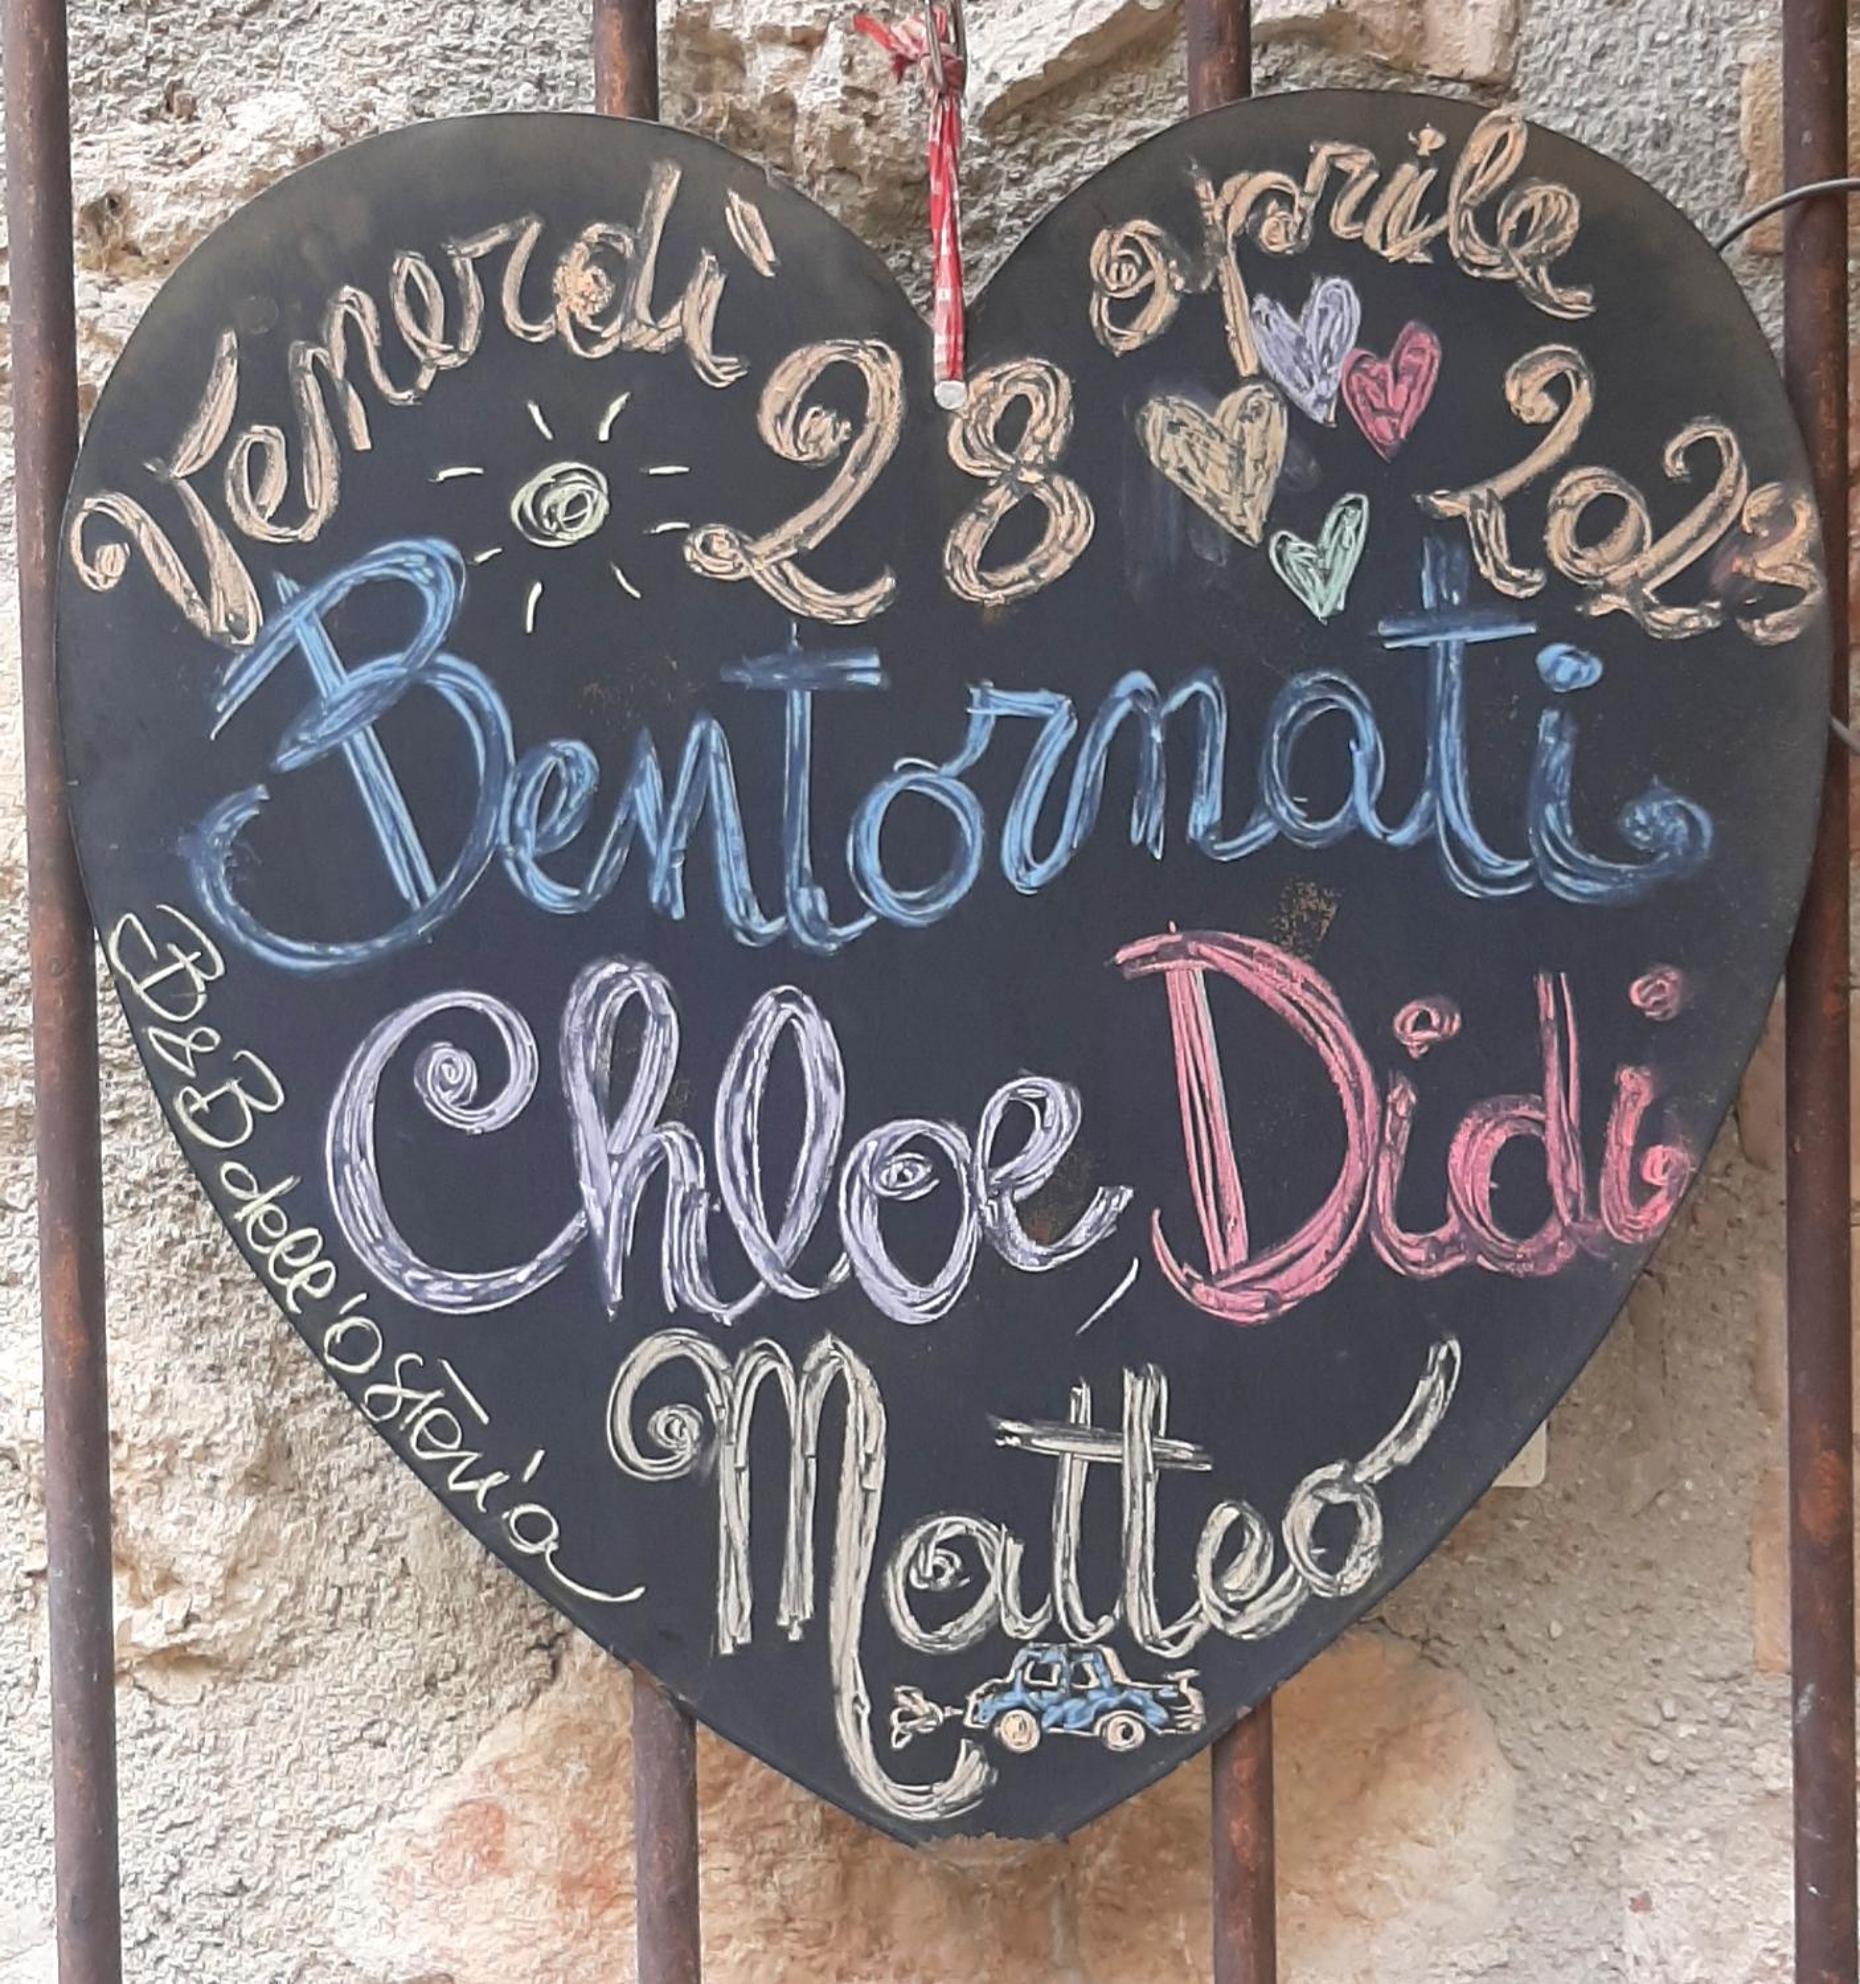 Venerdì 28 aprile 2023
Bentornati
Chloe, Didi
Matteo
B&B dell'Osteria